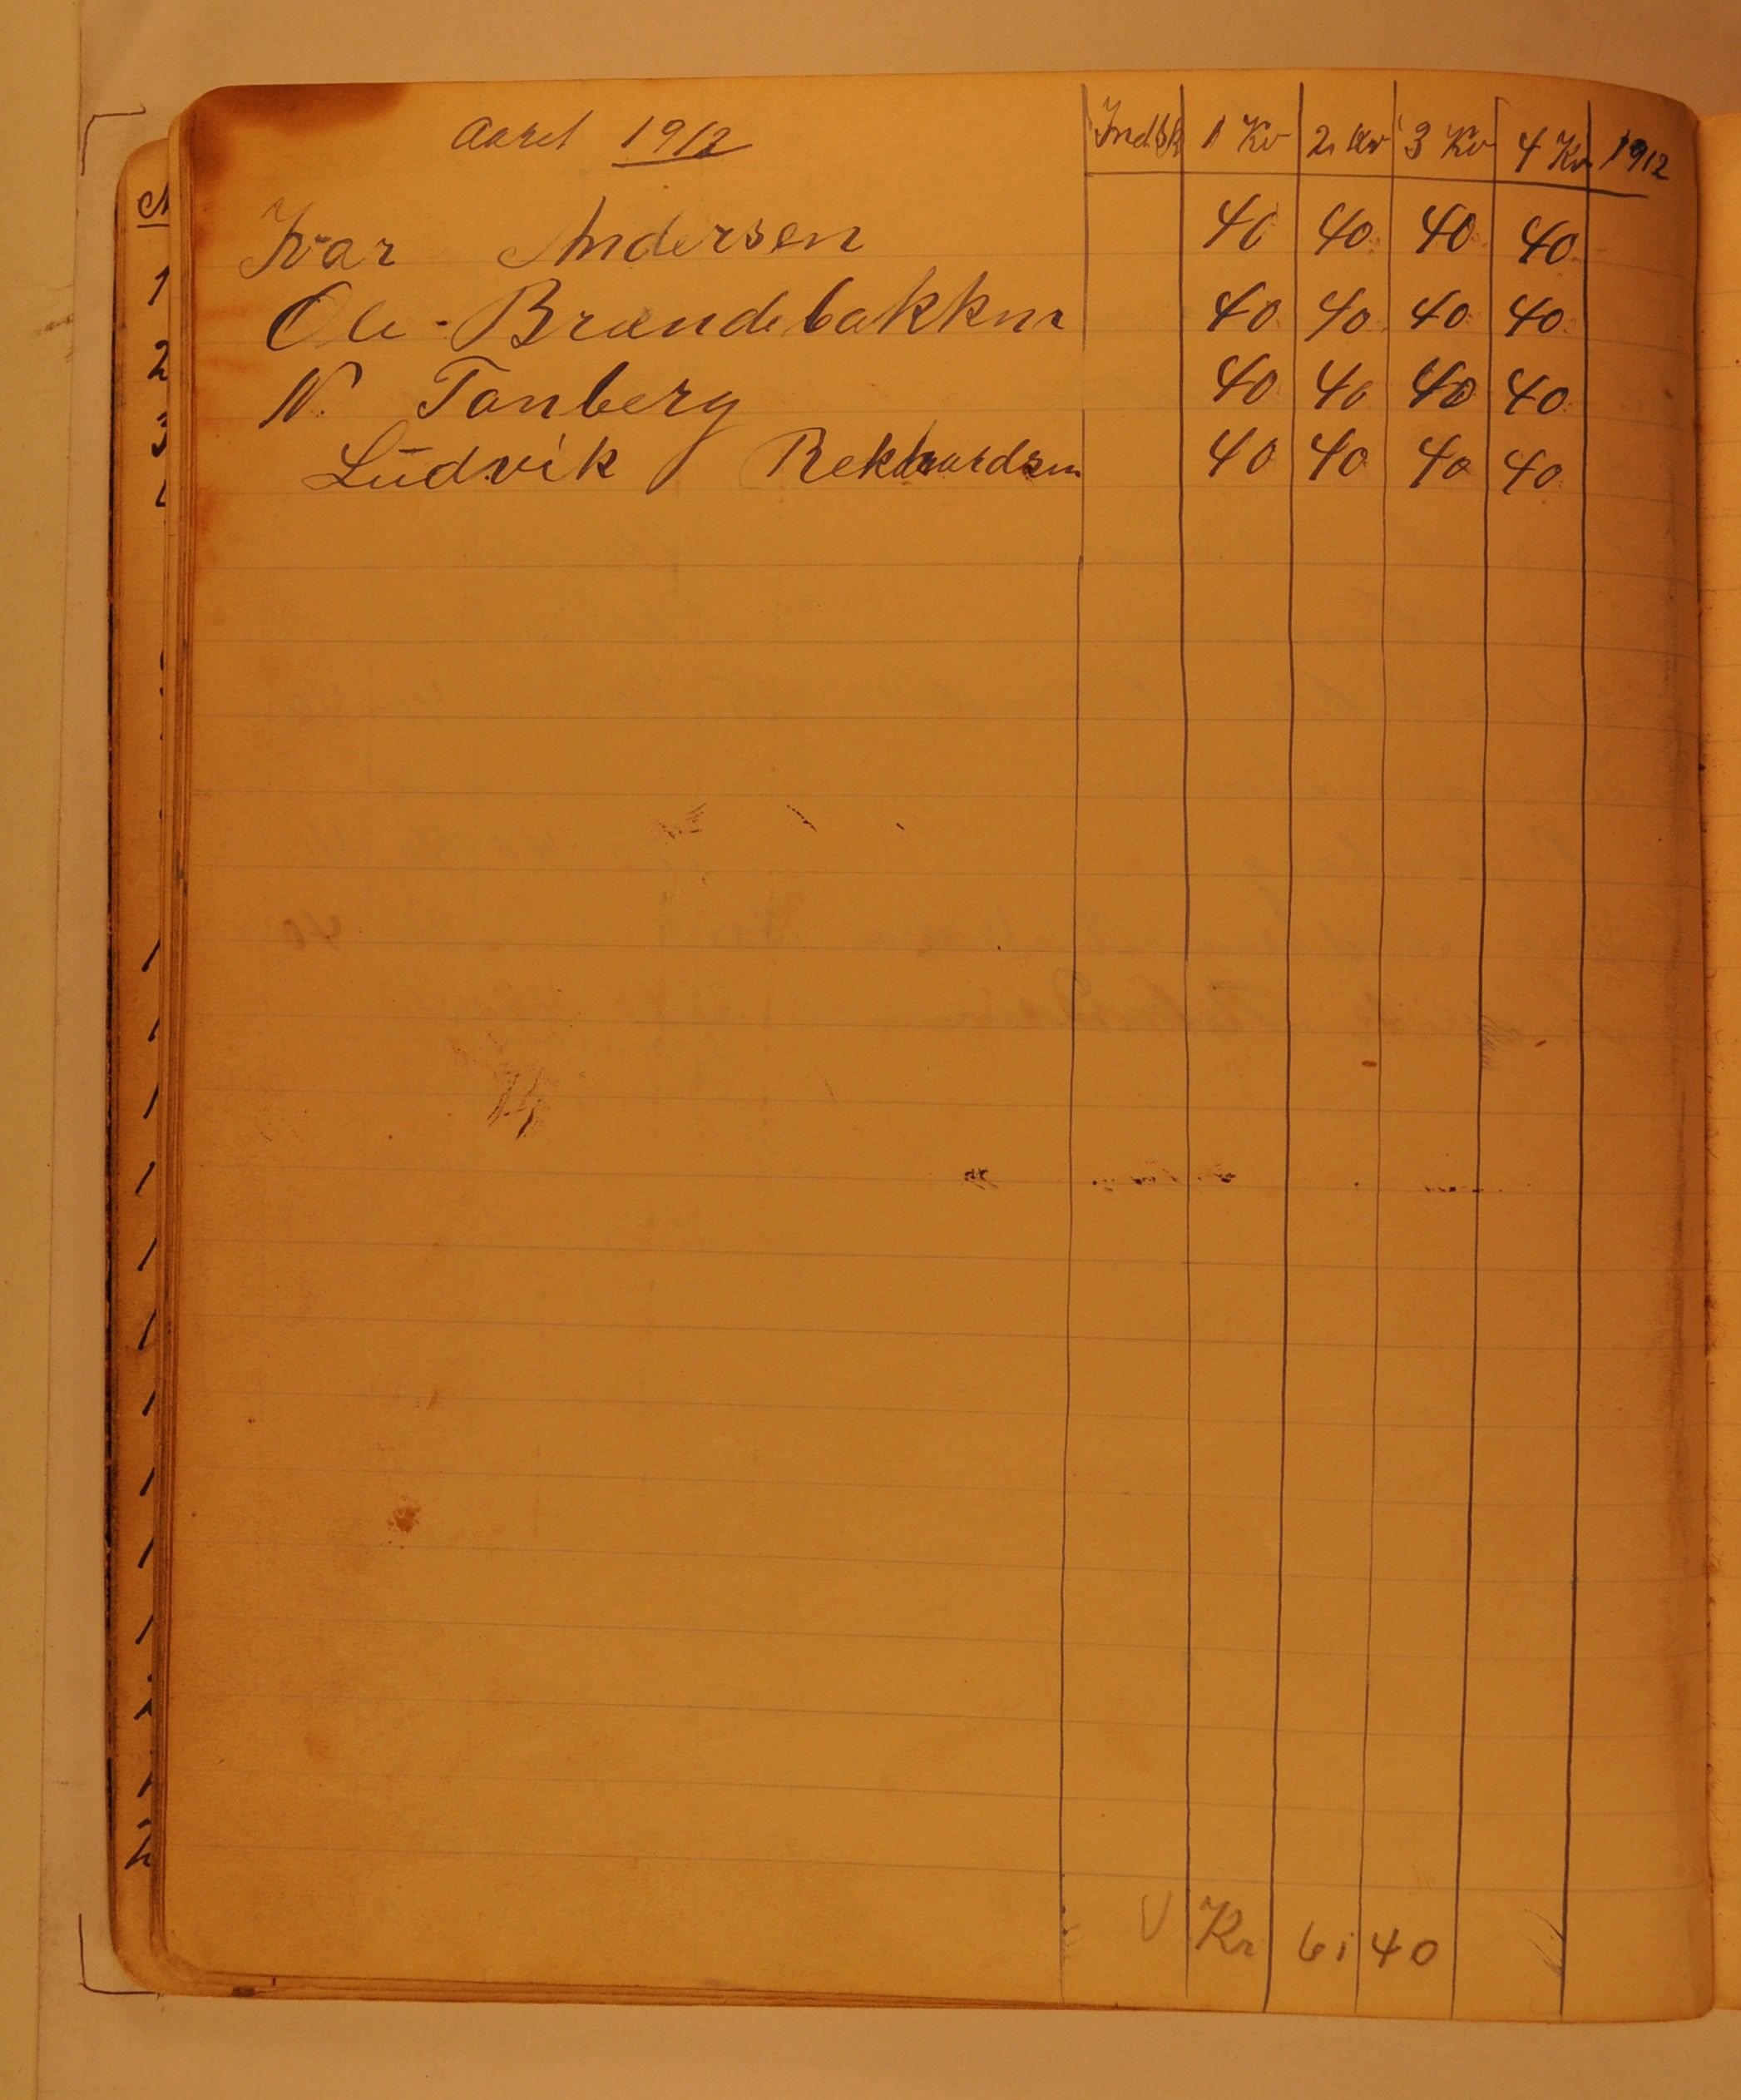 Aaret 1912 Indsk 1 Kv 2 Kv 3 Kv 4 Kv 1912
Ivar Andersen 40 40 40 40
Ole Brandebakken 40 40 40 40
N. Tanberg 40 40 40 40
Ludvik 40 40 40 40
Kr 6,40